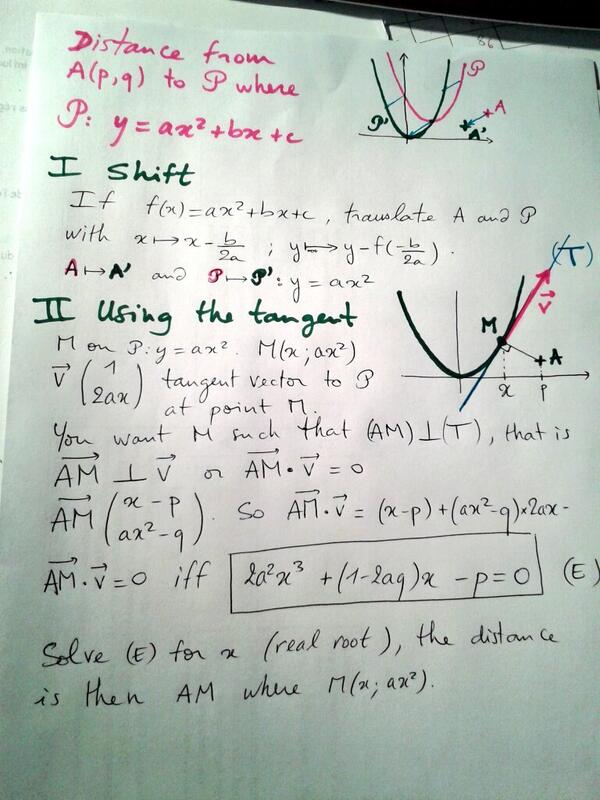 Distance from
A(p,q) to P where
P: y = ax² + bx + c
P
P'
A
A'
I Shift
If f(x) = ax² + bx + c, translate A and P
with x ↦ x - b/2a ; y ↦ y - f(-b/2a).
A ↦ A' and P ↦ P': y = ax²
II Using the tangent
(T)
V⃗
M
A
x
p
M on P: y = ax². M(x; ax²)
V⃗ (1 2ax) tangent vector to P
at point M.
You want M such that (AM) ⊥ (T), that is
AM⃗ ⊥ V⃗ or AM⃗ · V⃗ = 0
AM⃗ (x - p ax² - q). So AM⃗ · V⃗ = (x-p) + (ax²-q)×2ax -
AM⃗ · V⃗ = 0 iff 2a²x³ + (1-2aq)x - p = 0 (E)
Solve (E) for x (real root), the distance
is then AM where M(x; ax²).